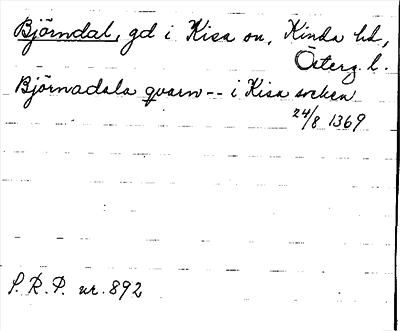 Björndal, gd i Kisa sn, Kinda hd,
Österg. l.
Björnadala qvarn -- i Kisa soken
24/8 1369
S. R. P. nr. 892